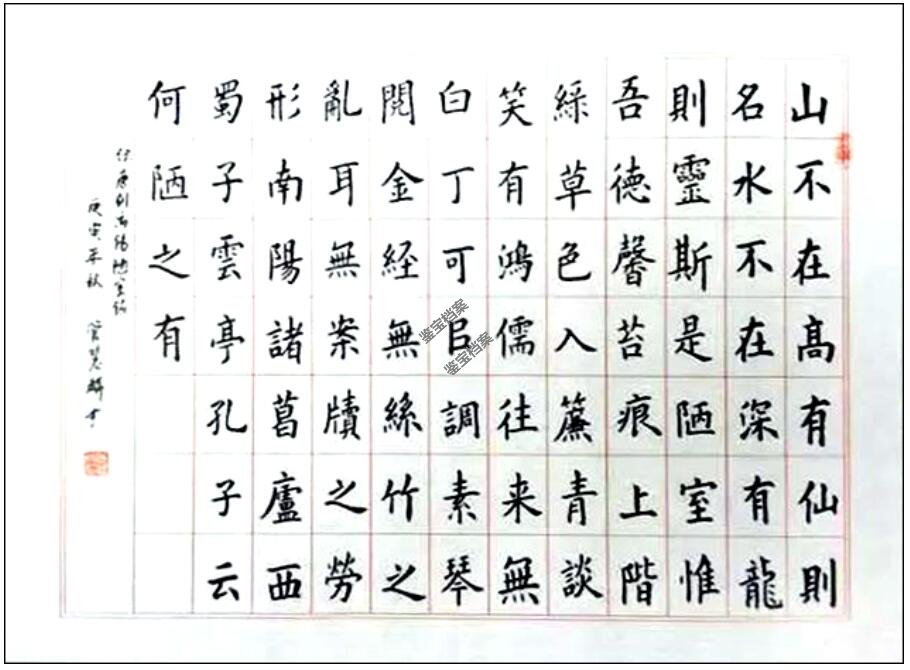 山不在髙有仙則
名水不在深有龍
則靈斯是陋室惟
吾德馨苔痕上階
綠草色入簾青談
笑有鴻儒往来無
白丁可㠯調素琴
閱金經無絲竹之
亂耳無案牘之勞
形南陽諸葛廬西
蜀子雲亭孔子云
何陋之有
唐刘禹锡陋室铭
庚寅年秋
鉴宝档案
鉴宝档案